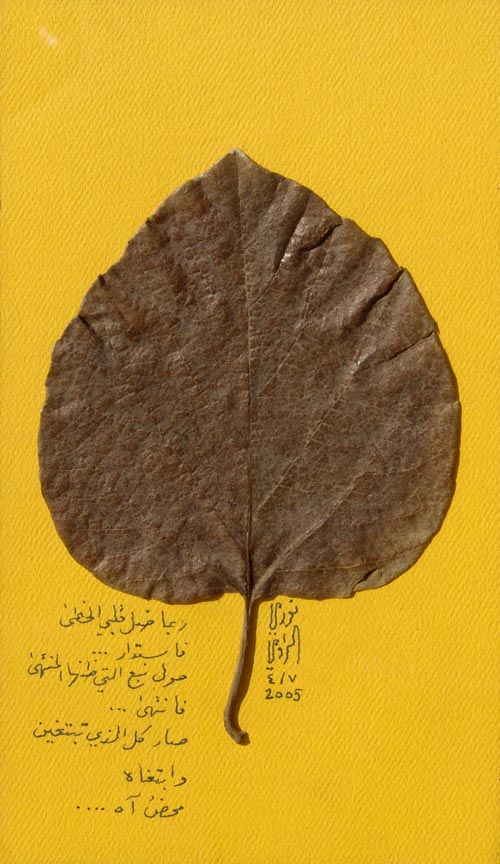 ربما ضل قلبي الخطى
فاستدار ...
حول نبع التي ظنها المنتهى
فانتهى ...
صار كل الذي تبتغين
وابتغاه
محض آه ....
نوري
الراوي
٤/٧
2005